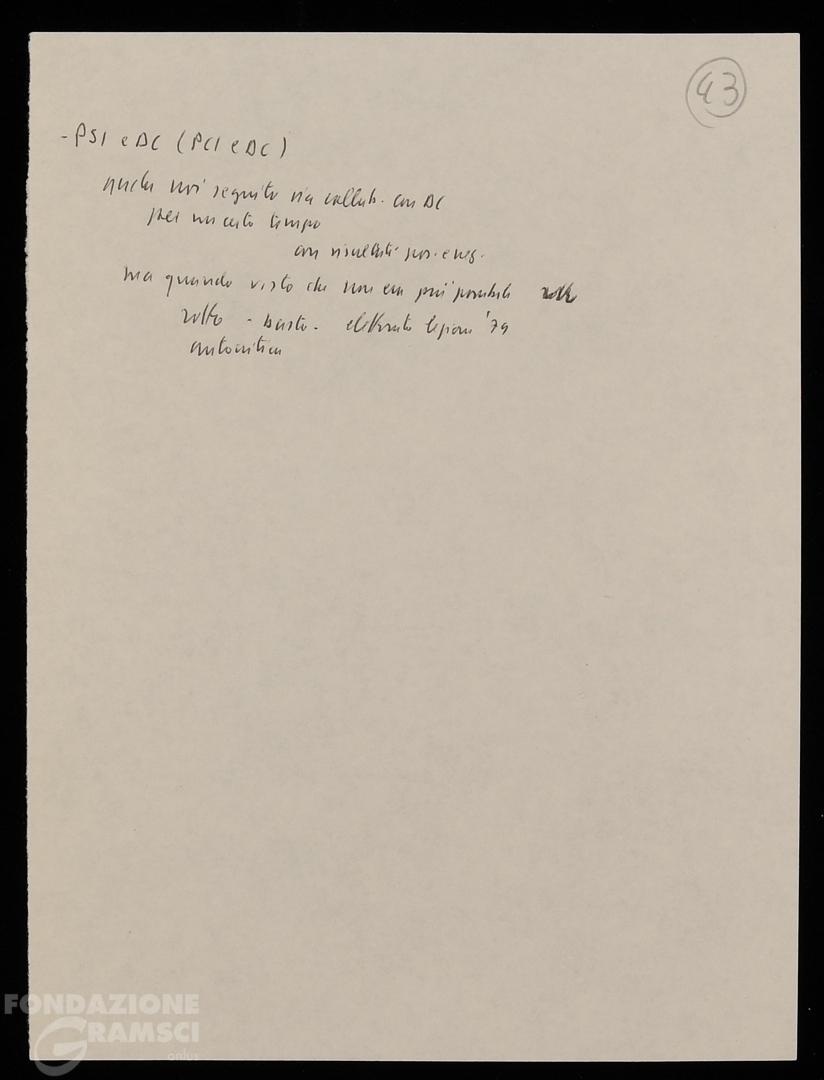 43
- PSI e DC (PCI e DC)
anche noi seguito via collab. con DC
per un certo tempo
con risultati pos. e neg.
ma quando visto che non era più possibile
rotto - basta - elettorato lezione '79
autocritica
FONDAZIONE
GRAMSCI
onlus